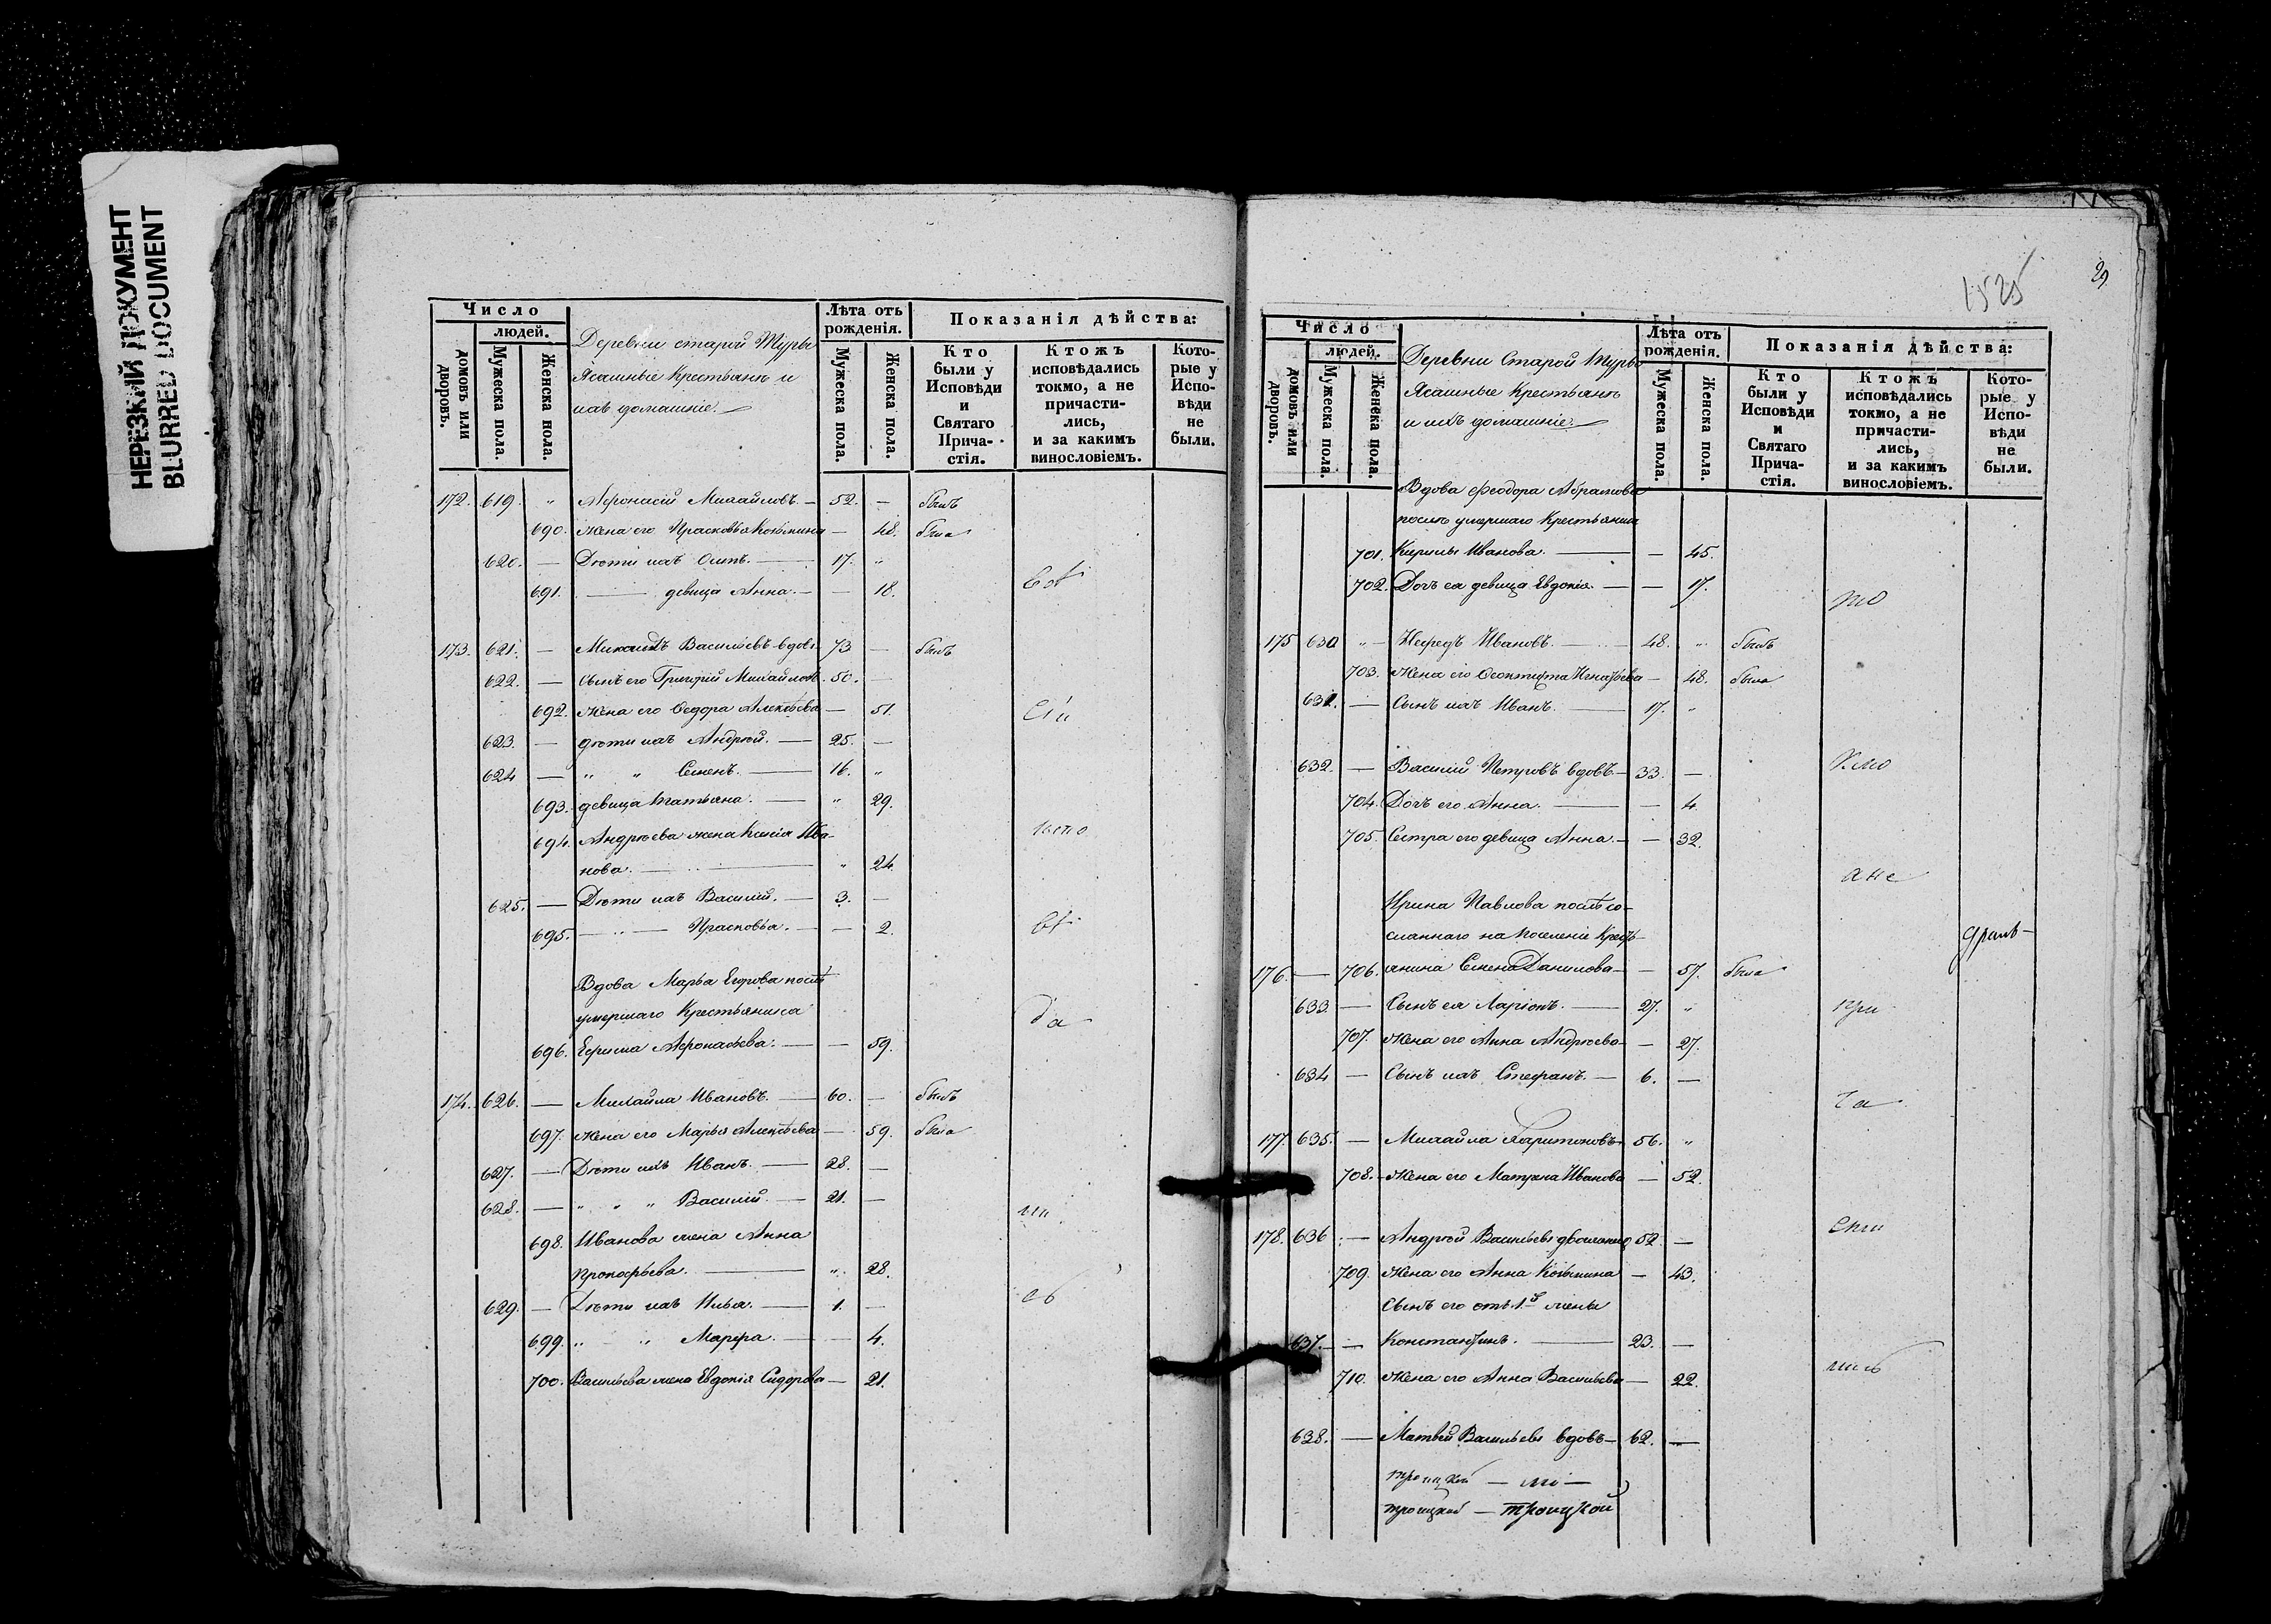 НЕРЕЗКИЙ ДОКУМЕНТ
BLURRED DOCUMENT
Число
людей.
домовъ или дворовъ.
Мужеска пола.
Женска пола.
Деревни старой Шуры
Ясашные Крестьянъ и
ихъ домашніе.
Лѣта отъ рожденія.
Мужеска пола.
Женска пола.
Показанія дѣйства:
Кто были у Исповѣди и Святаго Причастія.
Ктожъ исповѣдались токмо, а не причастились, и за какимъ винословіемъ.
Которые у Исповѣди не были.
172. 619. " Афонасій Михайловъ — 52. — былъ
690. Жена его Прасковья Козьмина — 48. была
620. — Дѣти ихъ Осипъ. — 17. "
691. — девица Анна. — — 18.
173. 621. — Михаилъ Васильевъ вдовъ 73 — былъ
622. — Сынъ его Григорій Михайловъ. 50. —
692. Жена его Федора Алексѣева — 51.
623. — дѣти ихъ Андрей. — 25. —
624 — " " Семенъ. — 16. "
693. девица Татьяна. — " 29.
694. Андрѣева жена Ксенія Ива-
нова. — " 24.
625. — Дѣти ихъ Василій. — 3. —
695. — " — Прасковья. — — 2.
Вдова Марья Егорова послѣ
умершаго Крестьянина
696. Ефима Афонасьева. — — 59.
174. 626. — Михайла Ивановъ. — 60. — былъ
697. Жена его Марья Алексѣева — 59. была
627. — Дѣти ихъ Иванъ. — 28. —
628. — " " " Василій. — 21. —
698. Иванова жена Анна
Прокофьева. — " 28.
629. — Дѣти ихъ Илья. — 1. —
699. " " Марфа. — — 4.
700. Васильева жена Евдокія Сидорова — 21.
1525
29
Число
людей.
домовъ или дворовъ.
Мужеска пола.
Женска пола.
Деревни Старой Шуры
Ясашные Крестьянъ
и ихъ домашніе.
Лѣта отъ рожденія.
Мужеска пола.
Женска пола.
Показанія дѣйства:
Кто были у Исповѣди и Святаго Причастія.
Ктожъ исповѣдались токмо, а не причастились, и за какимъ винословіемъ.
Которые у Исповѣди не были.
Вдова Феодора Абрамова
послѣ умершаго Крестьянина
701. Кирилы Иванова. — — 45.
702. Дочь ея девица Евдокія. — — 17.
175 630 " — Нефедъ Ивановъ. — 48. " былъ
703. Жена его Феоктиста Игнатьева — 48. была
631. — Сынъ ихъ Иванъ. — 17. "
632. — Василій Петровъ вдовъ — 33. —
704. Дочь его Анна. — — 4.
705. Сестра его девица Анна. — — 32.
а не
Ирина Павлова послѣ со-
сланнаго на поселеніе Кресть-
176. — 706. янина Семена Данилова — — 57. была
633. — Сынъ ея Ларіонъ. — 27. "
при
707. Жена его Анна Андреева — — 27.
634 — Сынъ ихъ Стефанъ. — 6. —
ча
177. 635. — Михайла Харитоновъ 56. "
708. Жена его Матрена Иванова — 52.
178. 636 — Андрей Васильевъ двоеженецъ 52 —
709. Жена его Анна Козьмина — 43.
Сынъ его отъ 1й жены
637. — Константинъ. — 23. —
710. Жена его Анна Васильева — 22.
638. — Матвѣй Васильевъ вдовъ — 62. —
троицкой —
троицкой — троицкой